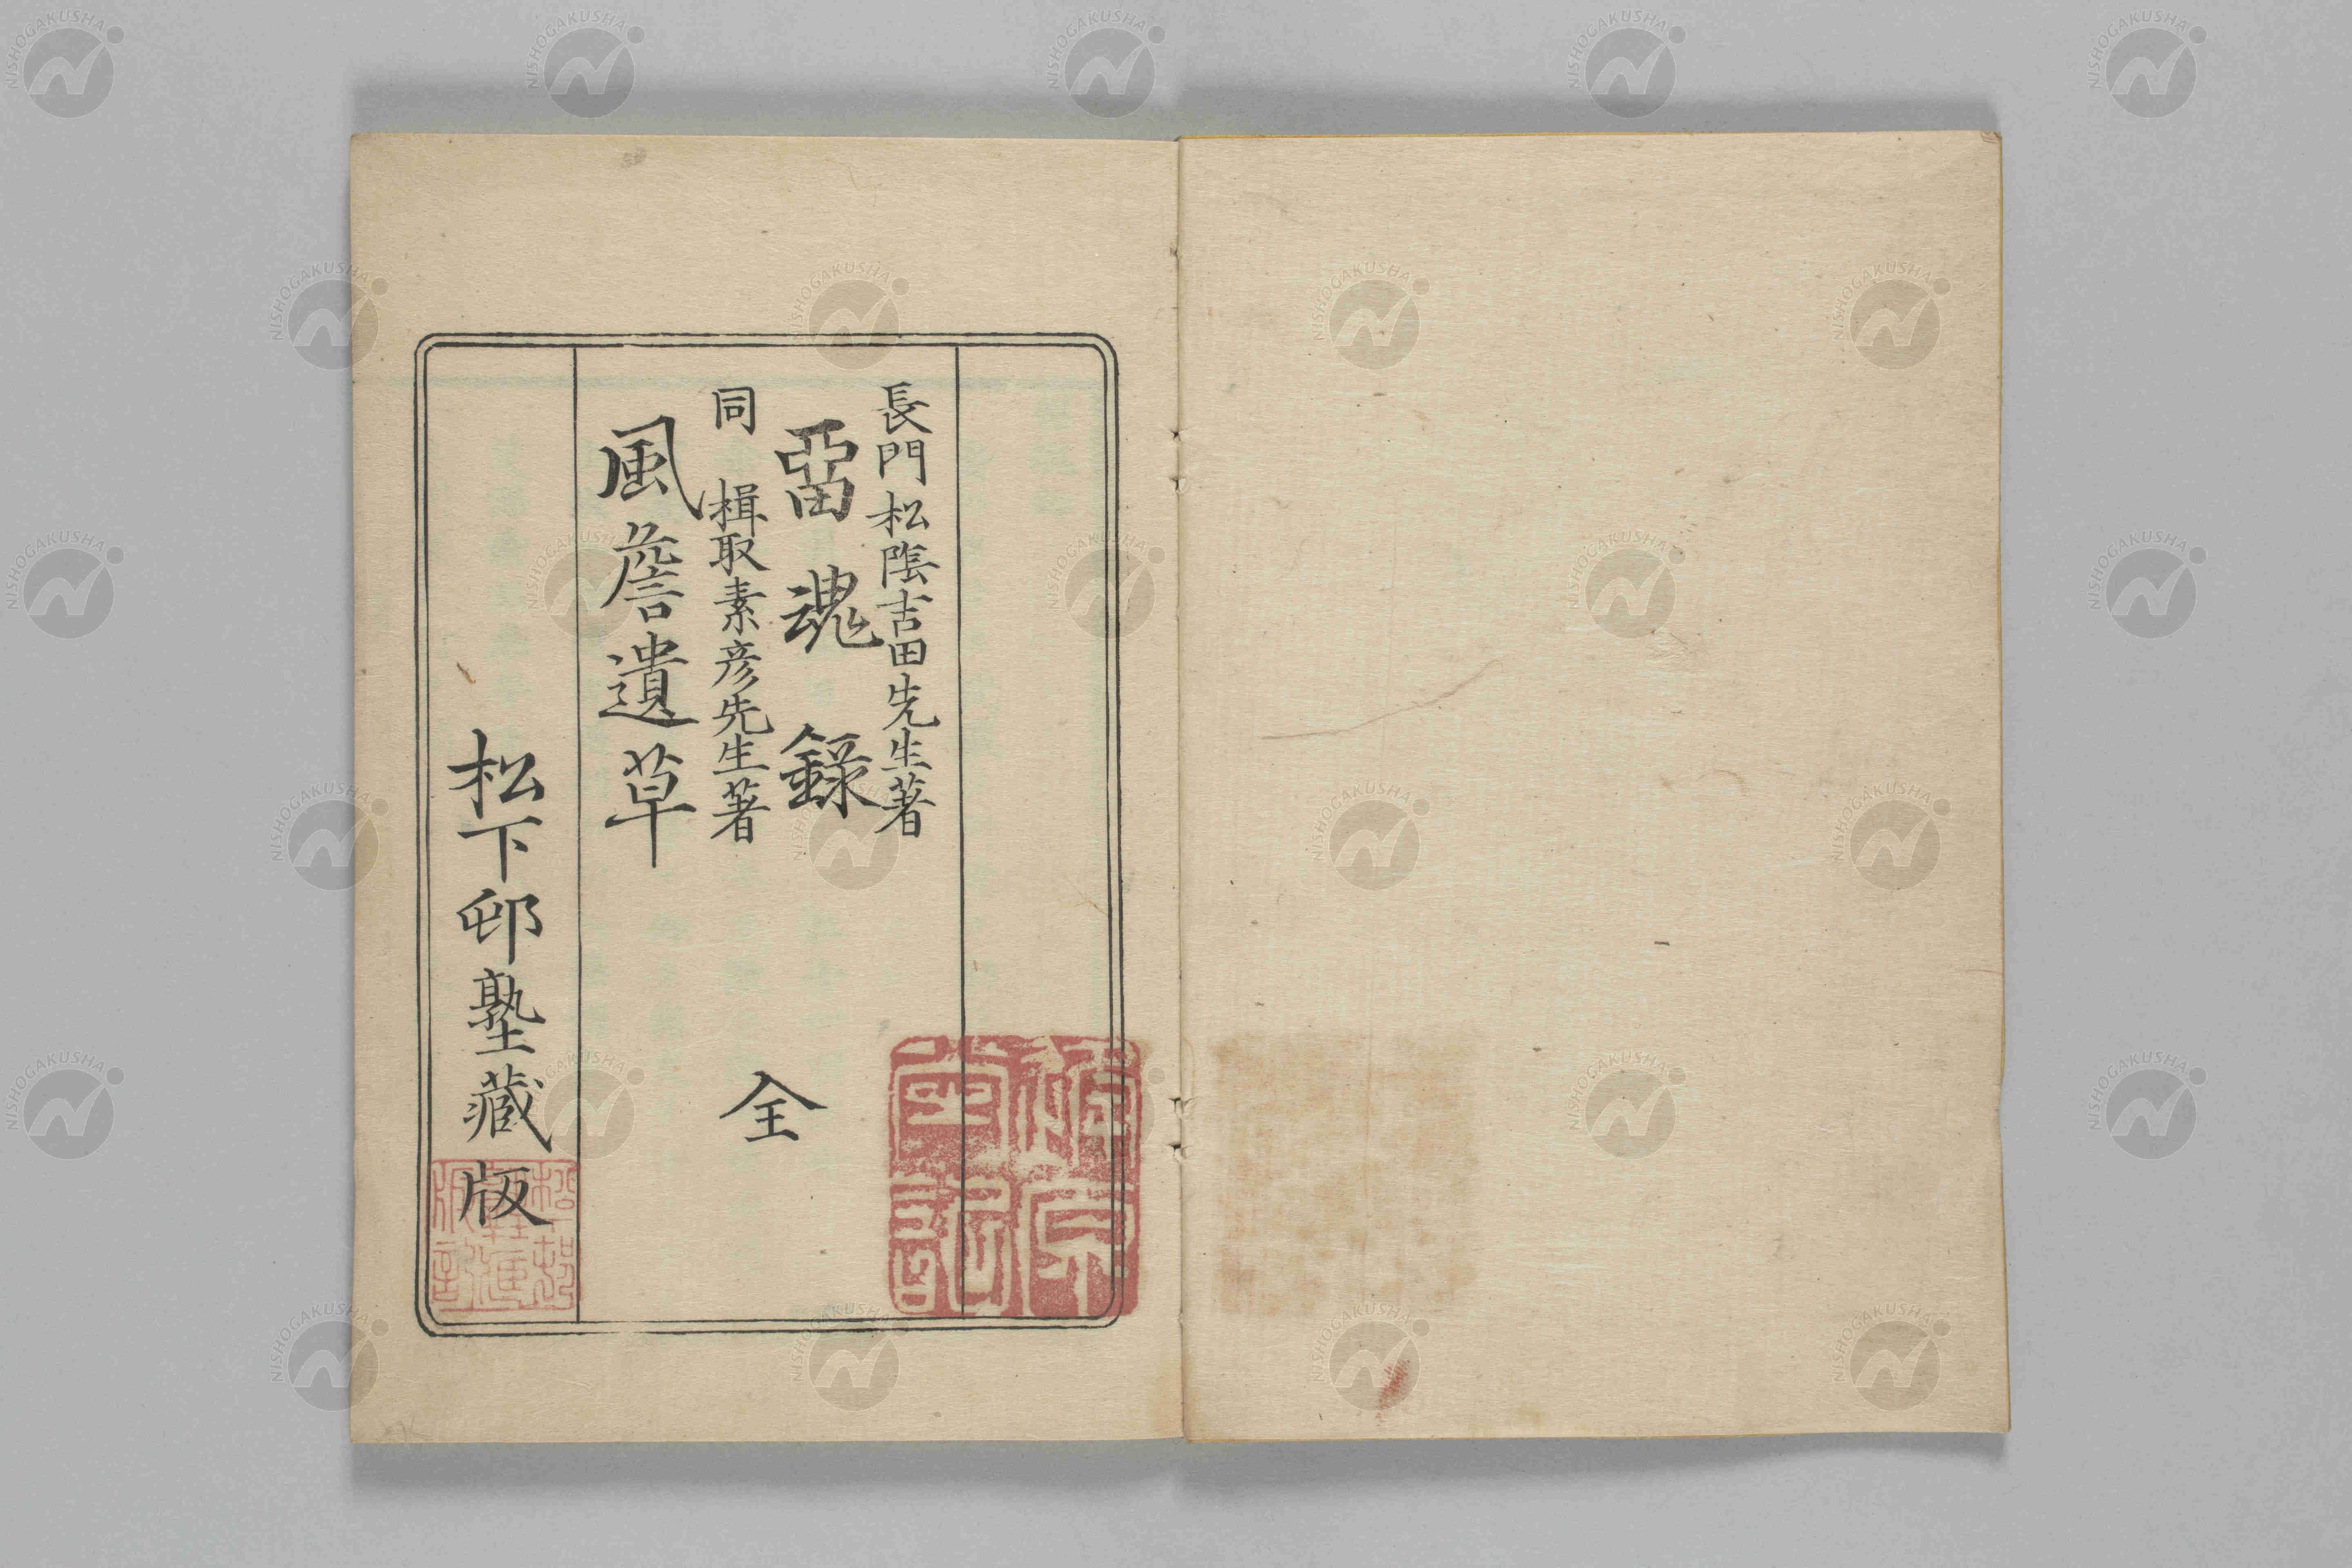 長門 松陰吉田先生著
畱魂錄
同 楫取素彦先生著
風詹遺草
全
松下邨塾藏版
NISHOGAKUSHA